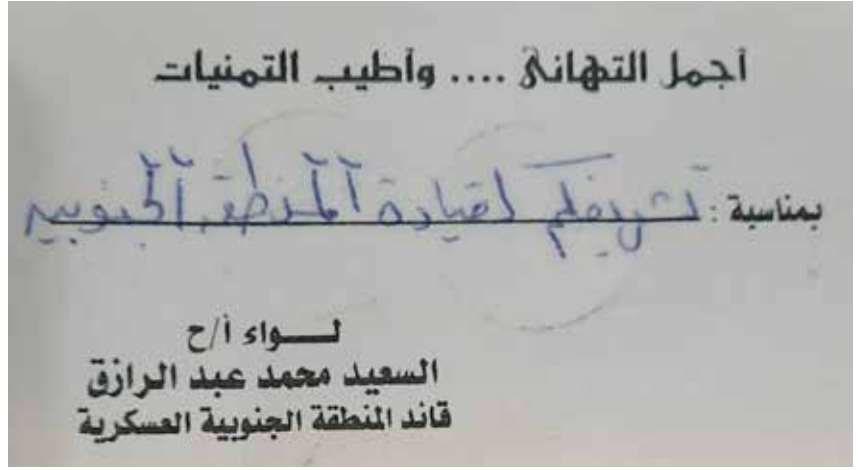 أجمل التهانى .... وأطيب التمنيات
بمناسبة : تشريفكم لقيادة المنطقة الجنوبية
لــواء أ/ح
السعيد محمد عبد الرازق
قائد المنطقة الجنوبية العسكرية